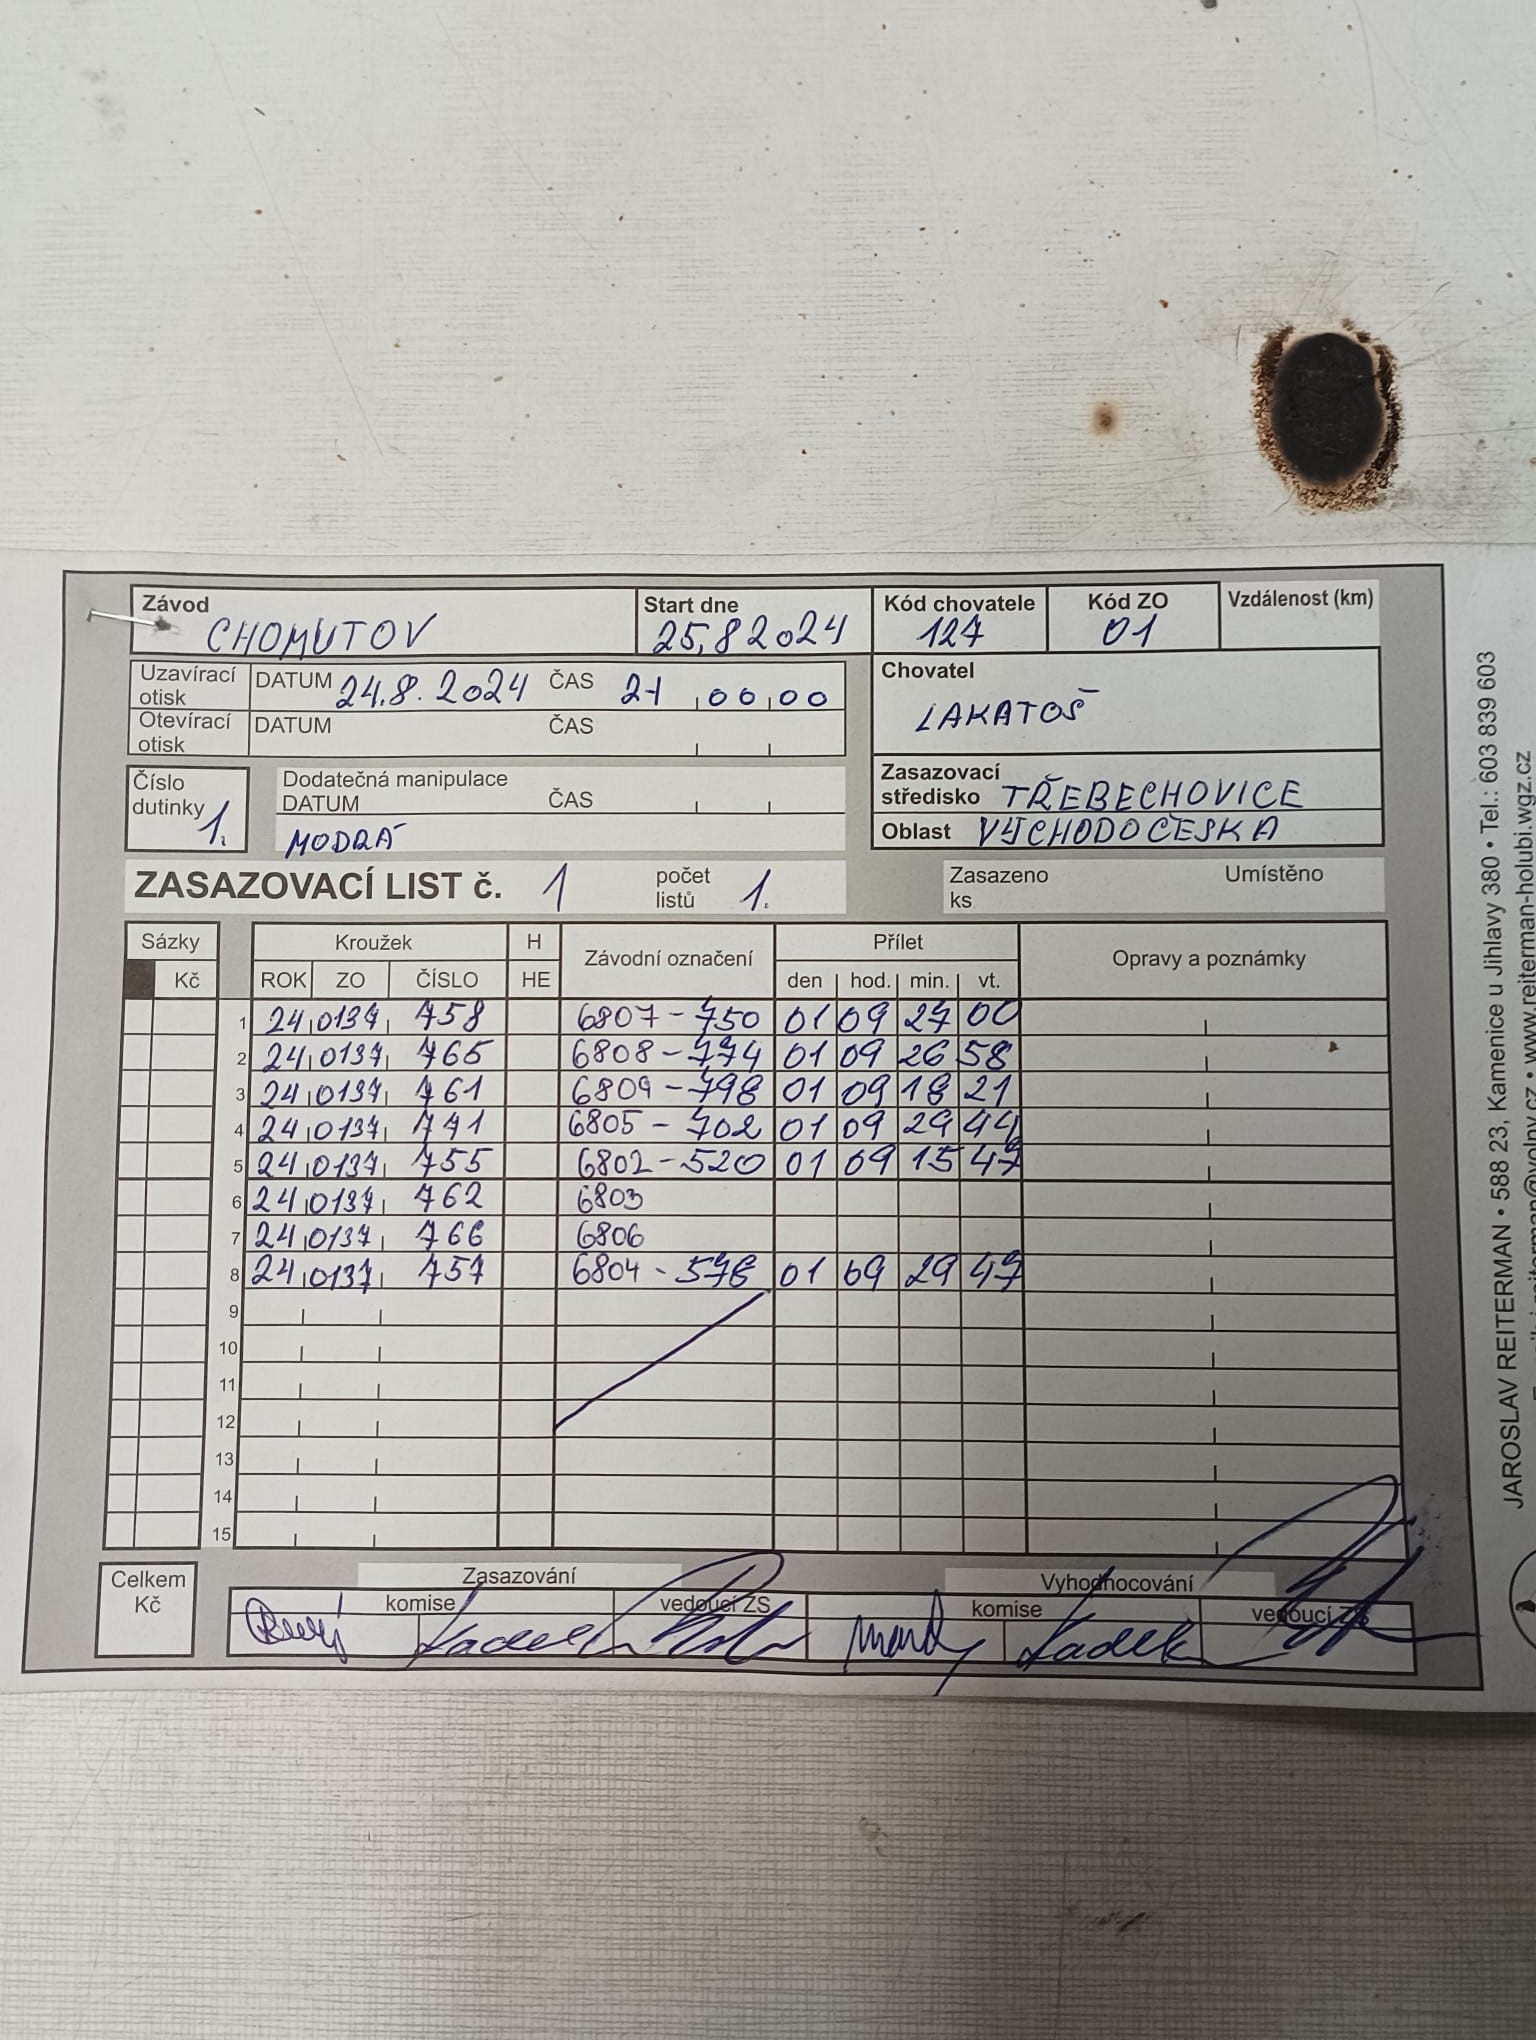 Závod
CHOMUTOV
Start dne
25,8 2024
Kód chovatele
127
Kód ZO
01
Vzdálenost (km)
Uzavírací otisk DATUM 24.8. 2024 ČAS 21 00 00
Otevírací otisk DATUM ČAS
Chovatel
LAKATOŠ
Číslo dutinky 1.
Dodatečná manipulace
DATUM ČAS
MODRÁ
Zasazovací středisko TŘEBECHOVICE
Oblast VÝCHODOČESKÁ
ZASAZOVACÍ LIST č. 1 počet listů 1.
Zasazeno ks Umístěno
Sázky Kroužek H Závodní označení Přílet Opravy a poznámky
Kč ROK ZO ČÍSLO HE den hod. min. vt.
1 24 0137 758 6807 - 750 01 09 27 00
2 24 0137 765 6808 - 774 01 09 26 58
3 24 0137 761 6809 - 798 01 09 18 21
4 24 0137 771 6805 - 702 01 09 29 44
5 24 0137 755 6802 - 520 01 09 15 47
6 24 0137 762 6803
7 24 0137 766 6806
8 24 0137 757 6804 - 576 01 09 29 47
9
10
11
12
13
14
15
Celkem Kč
Zasazování
komise vedoucí ZS
Vyhodnocování
komise vedoucí ZS
JAROSLAV REITERMAN • 588 23, Kamenice u Jihlavy 380 • Tel.: 603 839 603
@volny.cz • www.reiterman-holubi.wgz.cz